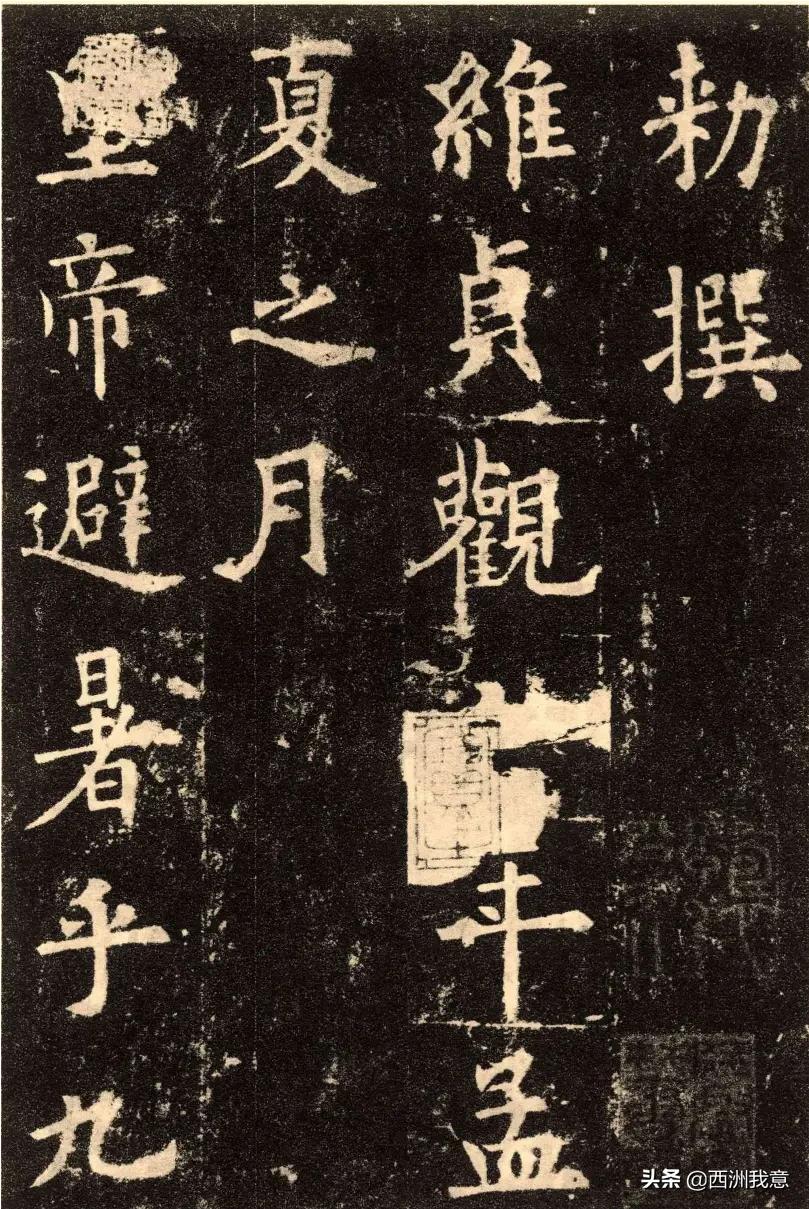 勅撰
維貞觀年孟
夏之月
皇帝避暑乎九
头条 @西洲我意